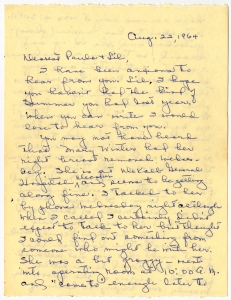 Aug. 22, 1964
Dearest Paula & Sil,
I have been anxious to
hear from you. Sil, I hope
you haven't had the kind of
Summer you had last year.
When you can write I would
love to hear from you.
You may not have heard
that Mary Writer had her
right breast removed Wednes-
day. She is at General
Hospital and seems to be getting
along fine. I talked to her
by phone Wednesday night although
when I called I certainly didn't
expect to talk to her but thought
I could find out something from
someone who might be with her.
She was a bit groggy - went
into operating room at 10:00 A.M.
and "came to" enough later to